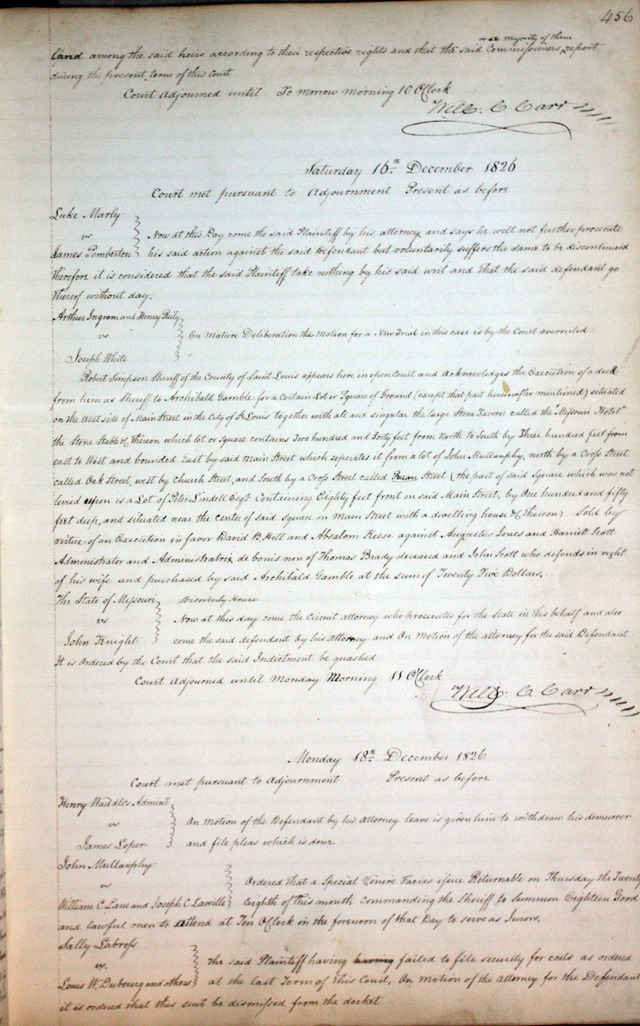 456
or a majority of them
land among the said heirs according to their respective rights and that the said Commissioners report
during the present term of this court
Court Adjourned until To morrow morning 10 OClock
Will. C Carr
Saturday 16th December 1826
Court met pursuant to Adjournment Present as before
Luke Marly
vs
James Pemberton
Now at this Day come the said Plaintiff by his attorney and says he will not further prosecute
his said action against the said Defendant but voluntarily suffers the same to be discontinued
Therefore it is considered that the said Plaintiff take nothing by his said writ and that the said defendant go
thereof without day.
Arthur Ingram and Henry Reily
vs
Joseph White
On Mature Deliberation the Motion for a New Trial in this case is by the Court overruled
Robert Simpson Sheriff of the County of Saint Louis appears here in open Court and Acknowledges the Execution of a deed
from him as Sheriff to Archibald Gamble for a Certain Lot or Square of Ground (except that part hereinafter mentioned) situated
on the West side of Main Street in the City of St Louis together with all and singular the large Stone Tavern called the "Missouri Hotel"
the Stone Stable &c Thereon which lot or square contains Two hundred and Forty feet from North to South by Three hundred feet from
east to West and bounded East by said Main Street which seperates it from a lot of John Mullanphy, north by a Cross Street
called Oak Street, west by church Street, and South by a Cross Street called Street (the part of said Square which was not
levied upon is a Lot of Peter Lindell Esqr. Containing Eighty feet front on said Main Street, by One hundred and fifty
feet deep, and situated near the center of said Square on Main Street with a dwelling house &c Thereon) Sold by
virtue of an Execution in favor David B. Hill and Absalom Keese against Augustus Jones and Harriett Scott
Administrator and Administratrix de bonis non of Thomas Brady deceased and John Scott who defends in right
of his wife and purchased by said Archibald Gamble at the sum of Twenty Five Dollars.
The State of Missouri
vs
John Knight
Disorderly House
Now at this day come the Circuit attorney who prosecutes for the State in this behalf and also
come the said defendant by his attorney and On Motion of the attorney for the said Defendant
It is ordered by the Court that the said Indictment be quashed
Court Adjourned until Monday Morning 11 OClock
Will. C Carr
Monday 18th December 1826
Court met pursuant to Adjournment Present as before
Henry Waddles Adminr
vs
James Loper
On Motion of the Defendant by his Attorney leave is given him to withdraw his demurrer
and file pleas which is done
John Mullanphy
vs
William C Lane and Joseph C Laveille
Ordered that a Special Venire Facias issue Returnable on Thursday the Twenty
Eighth of this month commanding the Sheriff to Summon Eighteen Good
and lawful men to attend at Ten OClock in the forenoon of that Day to serve as Jurors.
Sally Labross
vs.
Louis W. Dubourg and others
The said Plaintiff having having failed to file security for costs as ordered
at the last Term of this Court, On motion of the attorney for the Defendant
it is ordered that this suit be dismissed from the docket